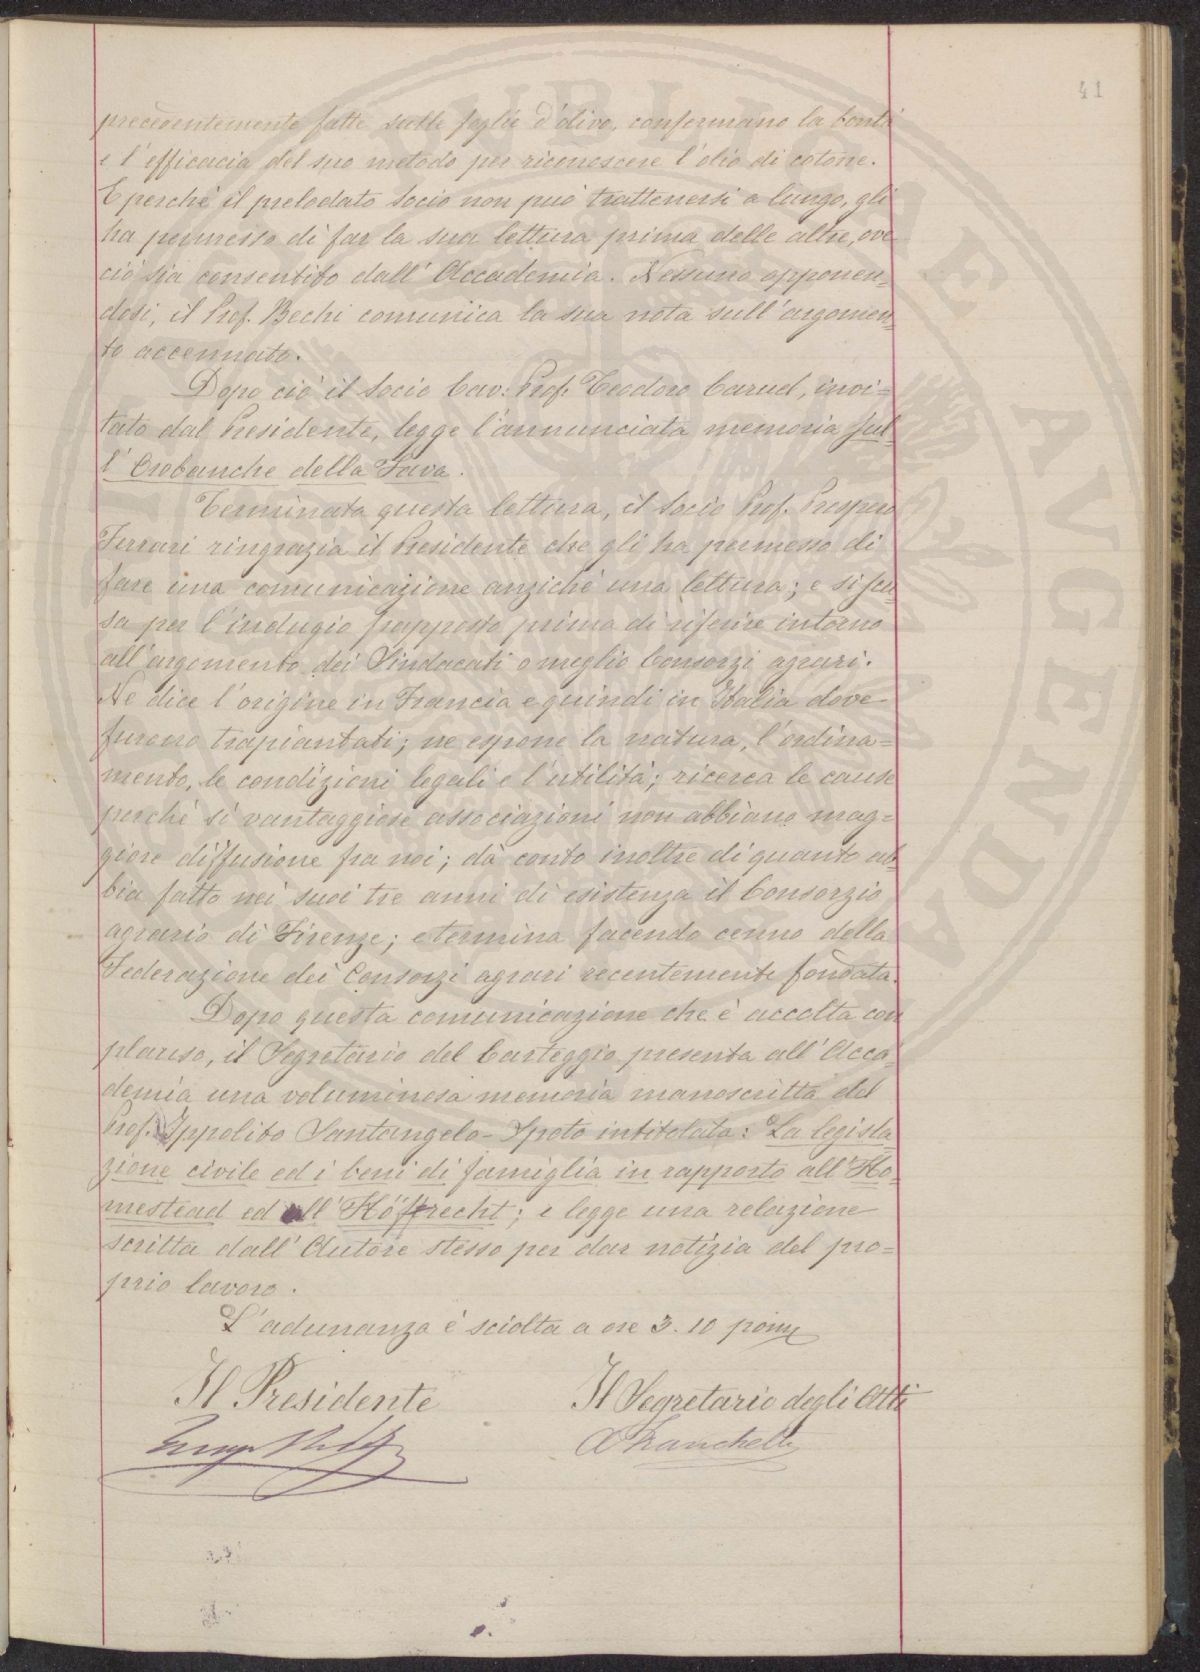 41
precedentemente fatte sulle foglie d'olivo, confermano la bontà
e l'efficacia del suo metodo per riconoscere l'olio di cotone.
E perchè il prelodato Socio non può trattenersi a lungo, gli
ha permesso di far la sua lettura prima delle altre, ove
ciò sia consentito dall'Accademia. Nessuno opponen=
dosi, il Prof. Bechi comunica la sua nota sull'argomen=
to accennato.
Dopo ciò il Socio Cav. Prof. Teodoro Caruel, invi=
tato dal Presidente, legge l'annunciata memoria Sul=
l'Orobanche della Fava.
Terminata questa lettura, il Socio Prof. Prospero
Ferrari ringrazia il Presidente che gli ha permesso di
fare una comunicazione anzichè una lettura; e si scu=
sa per l'indugio frapposto prima di riferire intorno
all'argomento dei Sindacati o meglio Consorzi agrari.
Ne dice l'origine in Francia e quindi in Italia dove
furono trapiantati; ne espone la natura, l'ordina=
mento, le condizioni legali e l'utilità; ricerca le cause
perchè sì vantaggiose associazioni non abbiano mag=
giore diffusione fra noi; dà conto inoltre di quanto ab=
bia fatto nei suoi tre anni di esistenza il Consorzio
agrario di Firenze; e termina facendo cenno della
Federazione dei Consorzi agrari recentemente fondata.
Dopo questa comunicazione che è accolta con
plauso, il Segretario del Carteggio presenta all'Acca=
demia una voluminosa memoria manoscritta del
Prof. Ippolito Santangelo-Spoto intitolata: La legisla
zione civile ed i beni di famiglia in rapporto all'Ho=
mestead ed all'Höferecht; e legge una relazione
scritta dall'Autore stesso per dar notizia del pro=
prio lavoro.
L'adunanza è sciolta a ore 3.10 pom
Il Presidente
Il Segretario degli Atti
A Franchetti
VBLICAE AVGENDA